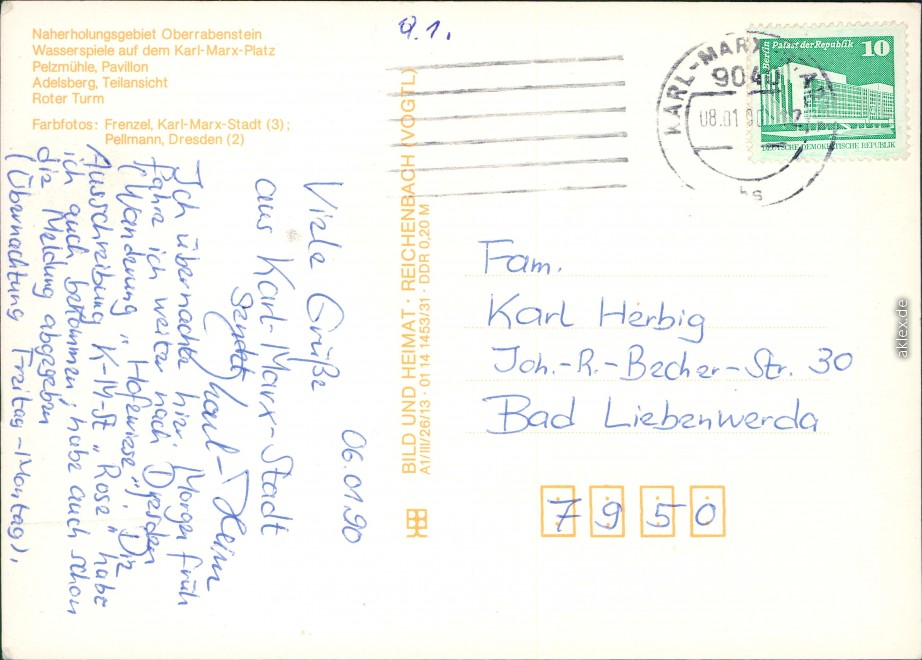 Naherholungsgebiet Oberrabenstein
Wasserspiele auf dem Karl-Marx-Platz
Pelzmühle, Pavillon
Adelsberg, Teilansicht
Roter Turm
Farbfotos: Frenzel, Karl-Marx-Stadt (3);
Pellmann, Dresden (2)
9.1.
KARL-MARX-
9040
08.01.90
Berlin Palast der Republik 10
DEUTSCHE DEMOKRATISCHE REPUBLIK
BILD UND HEIMAT · REICHENBACH (VOGTL)
A1/III/26/13 · 01 14 1453/31 · DDR 0,20 M
06.01.90
Viele Grüße
aus Karl-Marx-Stadt
sendet
Karl-Heinz
Ich übernachte hier. Morgen früh
fahre ich weiter nach Dresden
(Wanderung „Hofewiese“). Die
Ausschreibung K-M-St „Rose“ habe
ich auch bekommen; habe auch schon
die Meldung abgegeben
(Übernachtung Freitag-Montag).
Fam.
Karl Herbig
Joh.-R.-Becher-Str. 30
Bad Liebenwerda
7950
aklex.de